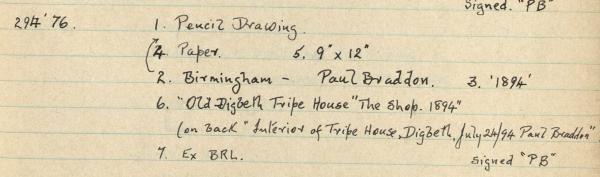 Signed. "PB"
294'76. 1. Pencil Drawing.
4. Paper. 5. 9" x 12"
2. Birmingham - Paul Braddon. 3. '1894'
6. "Old Digbeth Tripe House" The Shop. 1894"
(on back "Interior of Tripe House, Digbeth, July 24/94 Paul Braddon".
7. Ex BRL. Signed "PB"